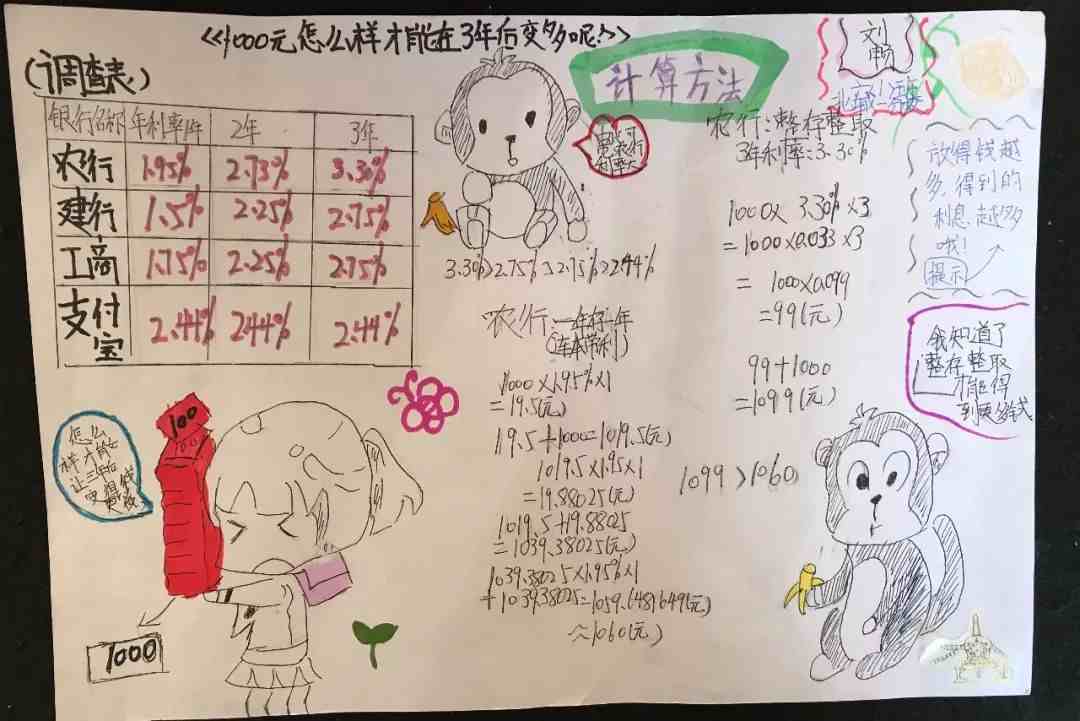 《1000元怎么样才能在3年后变多呢?》
(调查表)
银行名称 年利率1年 2年 3年
农行 1.95% 2.73% 3.30%
建行 1.5% 2.25% 2.75%
工商 1.75% 2.25% 2.75%
支付宝 2.44% 2.44% 2.44%
计算方法
刘
畅
农行:整存整取
3年利率:3.30%
1000×3.30%×3
=1000×0.033×3
=1000×0.099
=99(元)
99+1000
=1099(元)
1099>1060
放得钱越
多,得到的
利息越多
哦!
提示
我知道了
整存整取
才能得
到更多钱
3.30%>2.75%≥2.75%>2.44%
农行:一年存一年
(连本带利)
1000×1.95%×1
=19.5(元)
19.5+1000=1019.5(元)
1019.5×1.95×1
=19.88025(元)
1019.5+19.88025
=1039.38025(元)
1039.38025×1.95%×1
+1039.38025=1059.6481649(元)
≈1060(元)
怎么
样才能
让三年后
100
1000